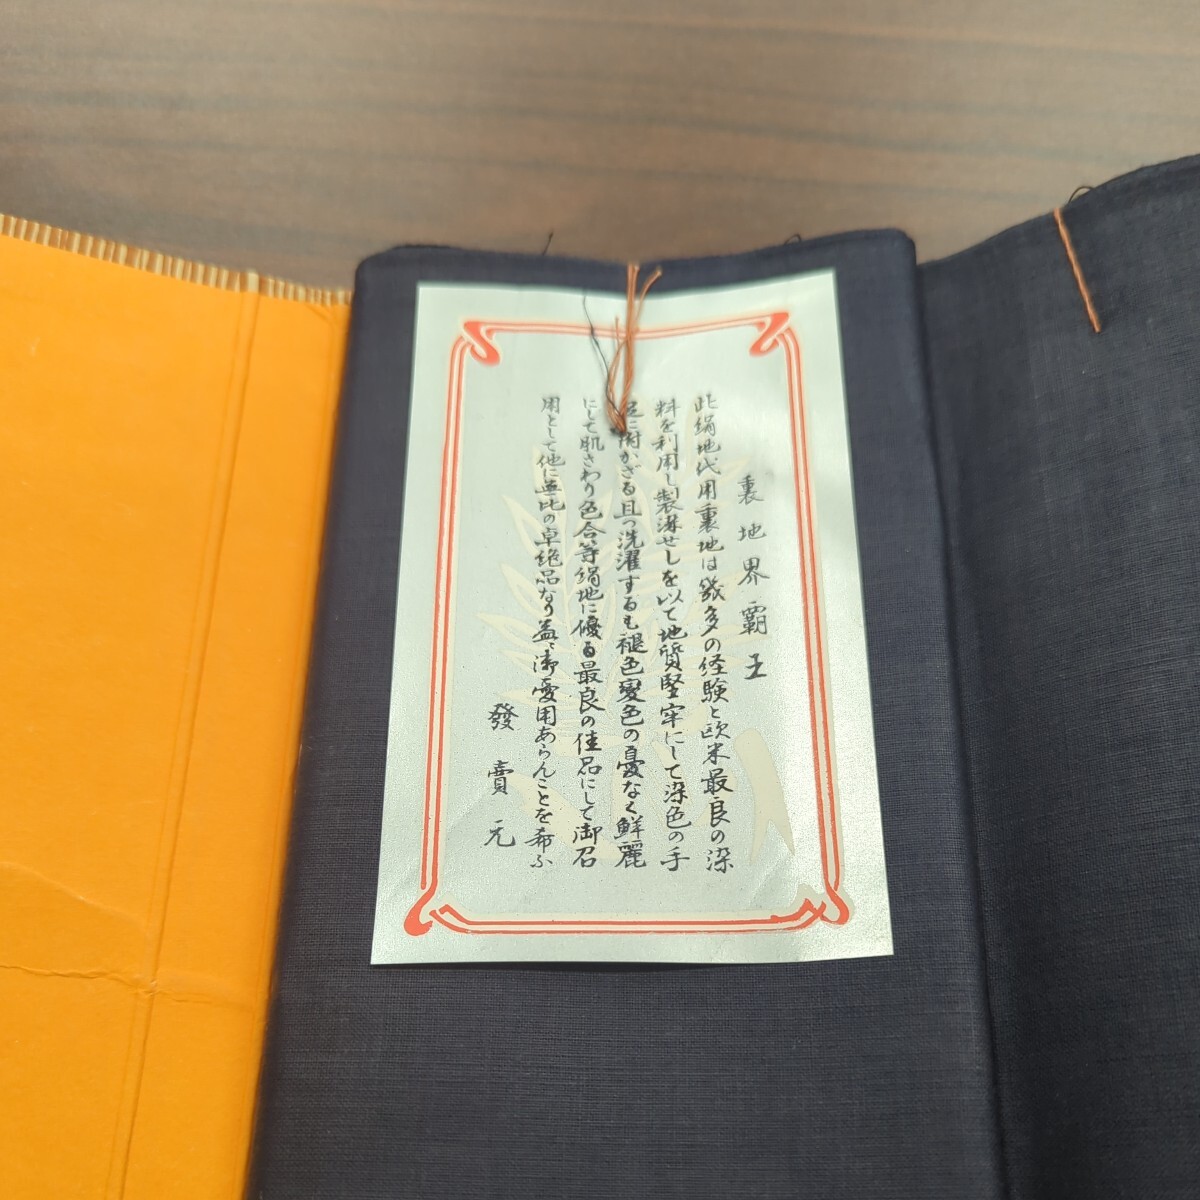 裏地界覇王
此絹地代用裏地は幾多の経験と欧米最良の染
料を利用し製漾せしを以て地質堅牢にして染色の手
足に附かざる且つ洗濯するも褪色變色の憂なく鮮麗
にして肌さわり色合等絹地に優る最良の佳品にして御召
用として他に無比の卓絶品なり益々御愛用あらんことを希ふ
發賣元